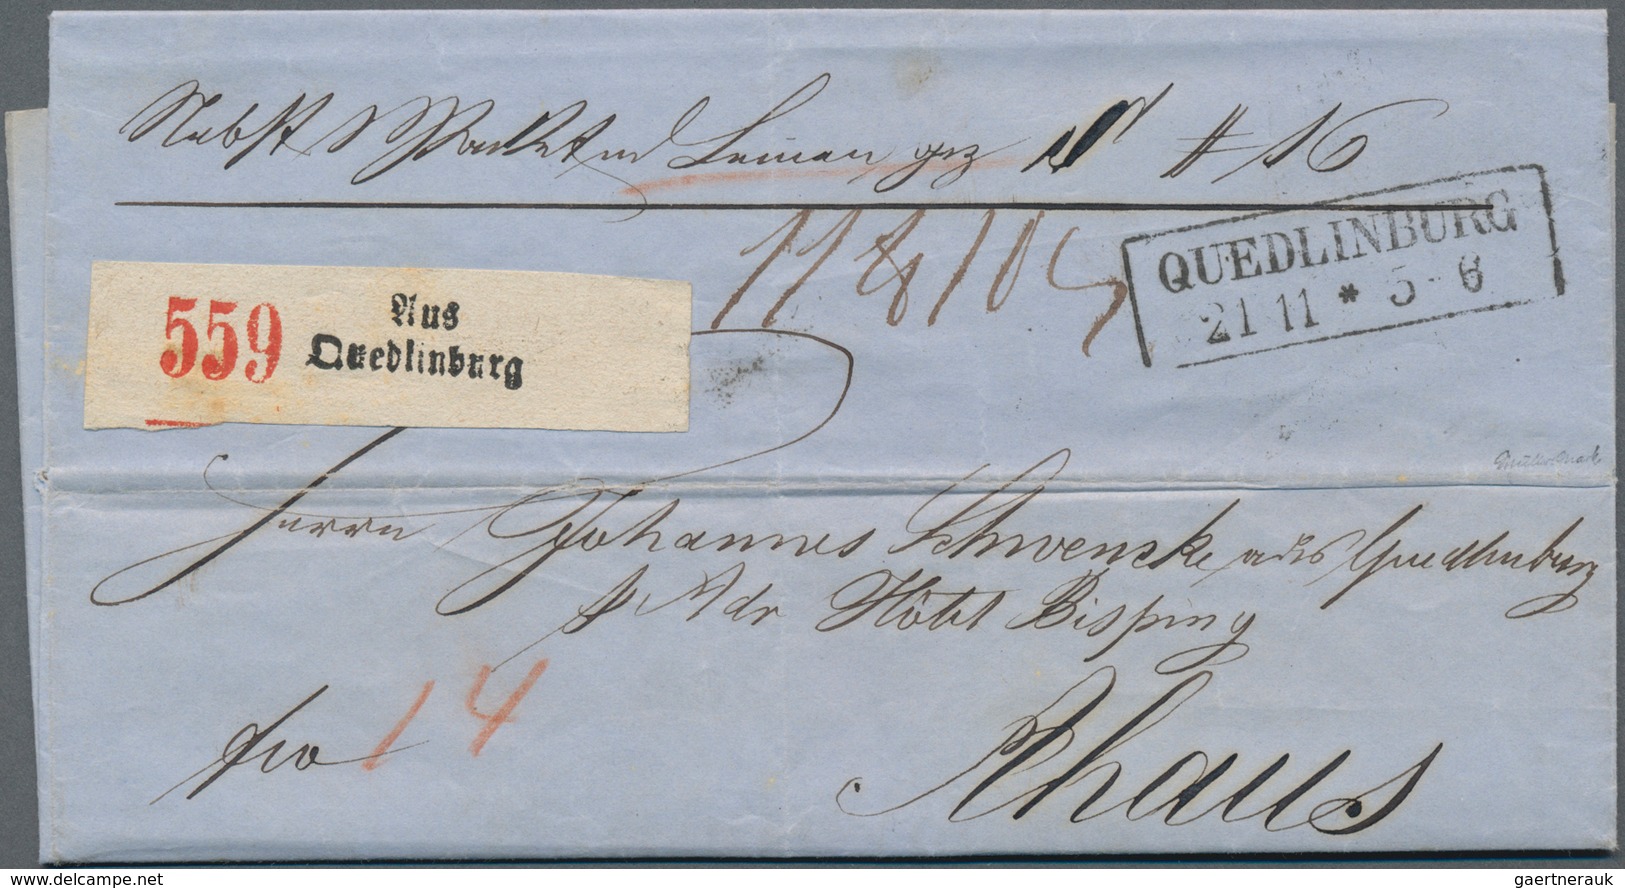 Nebst 1 Packet in Leinen gez # 16
11 & 10
QUEDLINBURG
21 11 * 5-6
559 Aus
Quedlinburg
Herrn Johannes Schwencke aus Quedlinburg
p Adr Hôtel Bisping
fro 14
Ahaus
delcampe.net
gaertnerauk